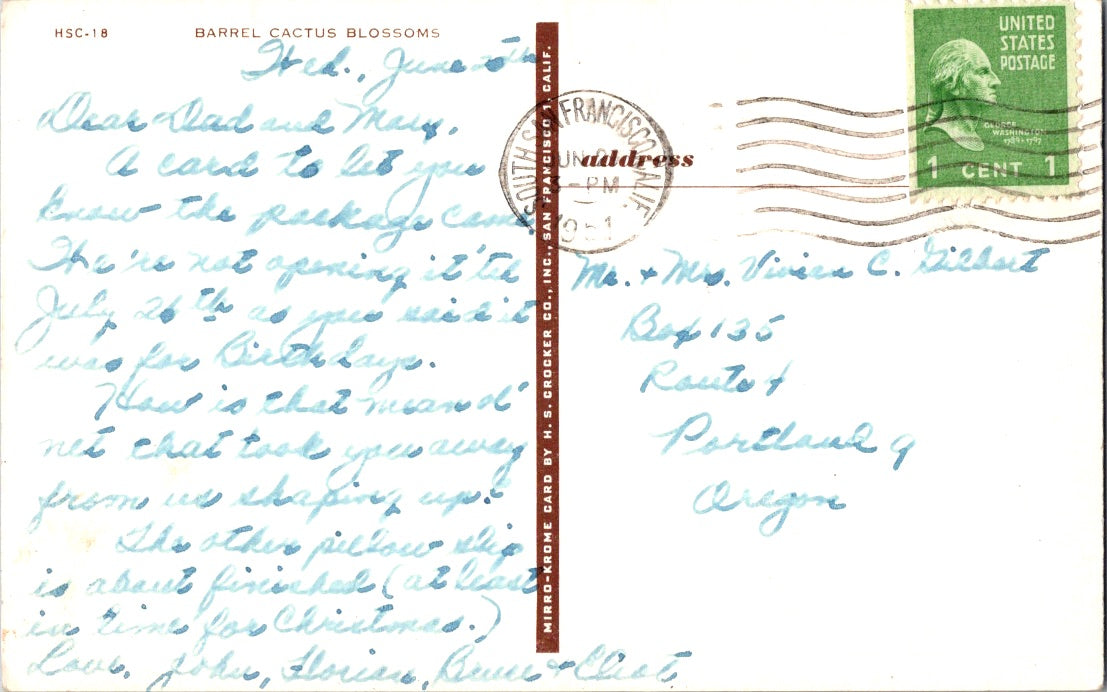 HSC-18 BARREL CACTUS BLOSSOMS
Wed., June
Dear Dad and Mary,
A card to let you
know the package came.
We're not opening it 'til
July 26th as you said it
was for Birthdays.
How is that mean ol'
net that took you away
from us shaping up?
The other pillow slip
is about finished (at least
in time for Christmas.)
Love, John, Florian, Bruce &
MIRRO-KROME CARD BY H. S. CROCKER CO., INC., SAN FRANCISCO 1, CALIF.
SOUTH SAN FRANCISCO, CALIF.
JUN
PM
1951
address
UNITED
STATES
POSTAGE
GEORGE
WASHINGTON
1789-1797
1 CENT 1
Mr. & Mrs. Vivian C. Gilbert
Box 135
Route 4
Portland 9
Oregon